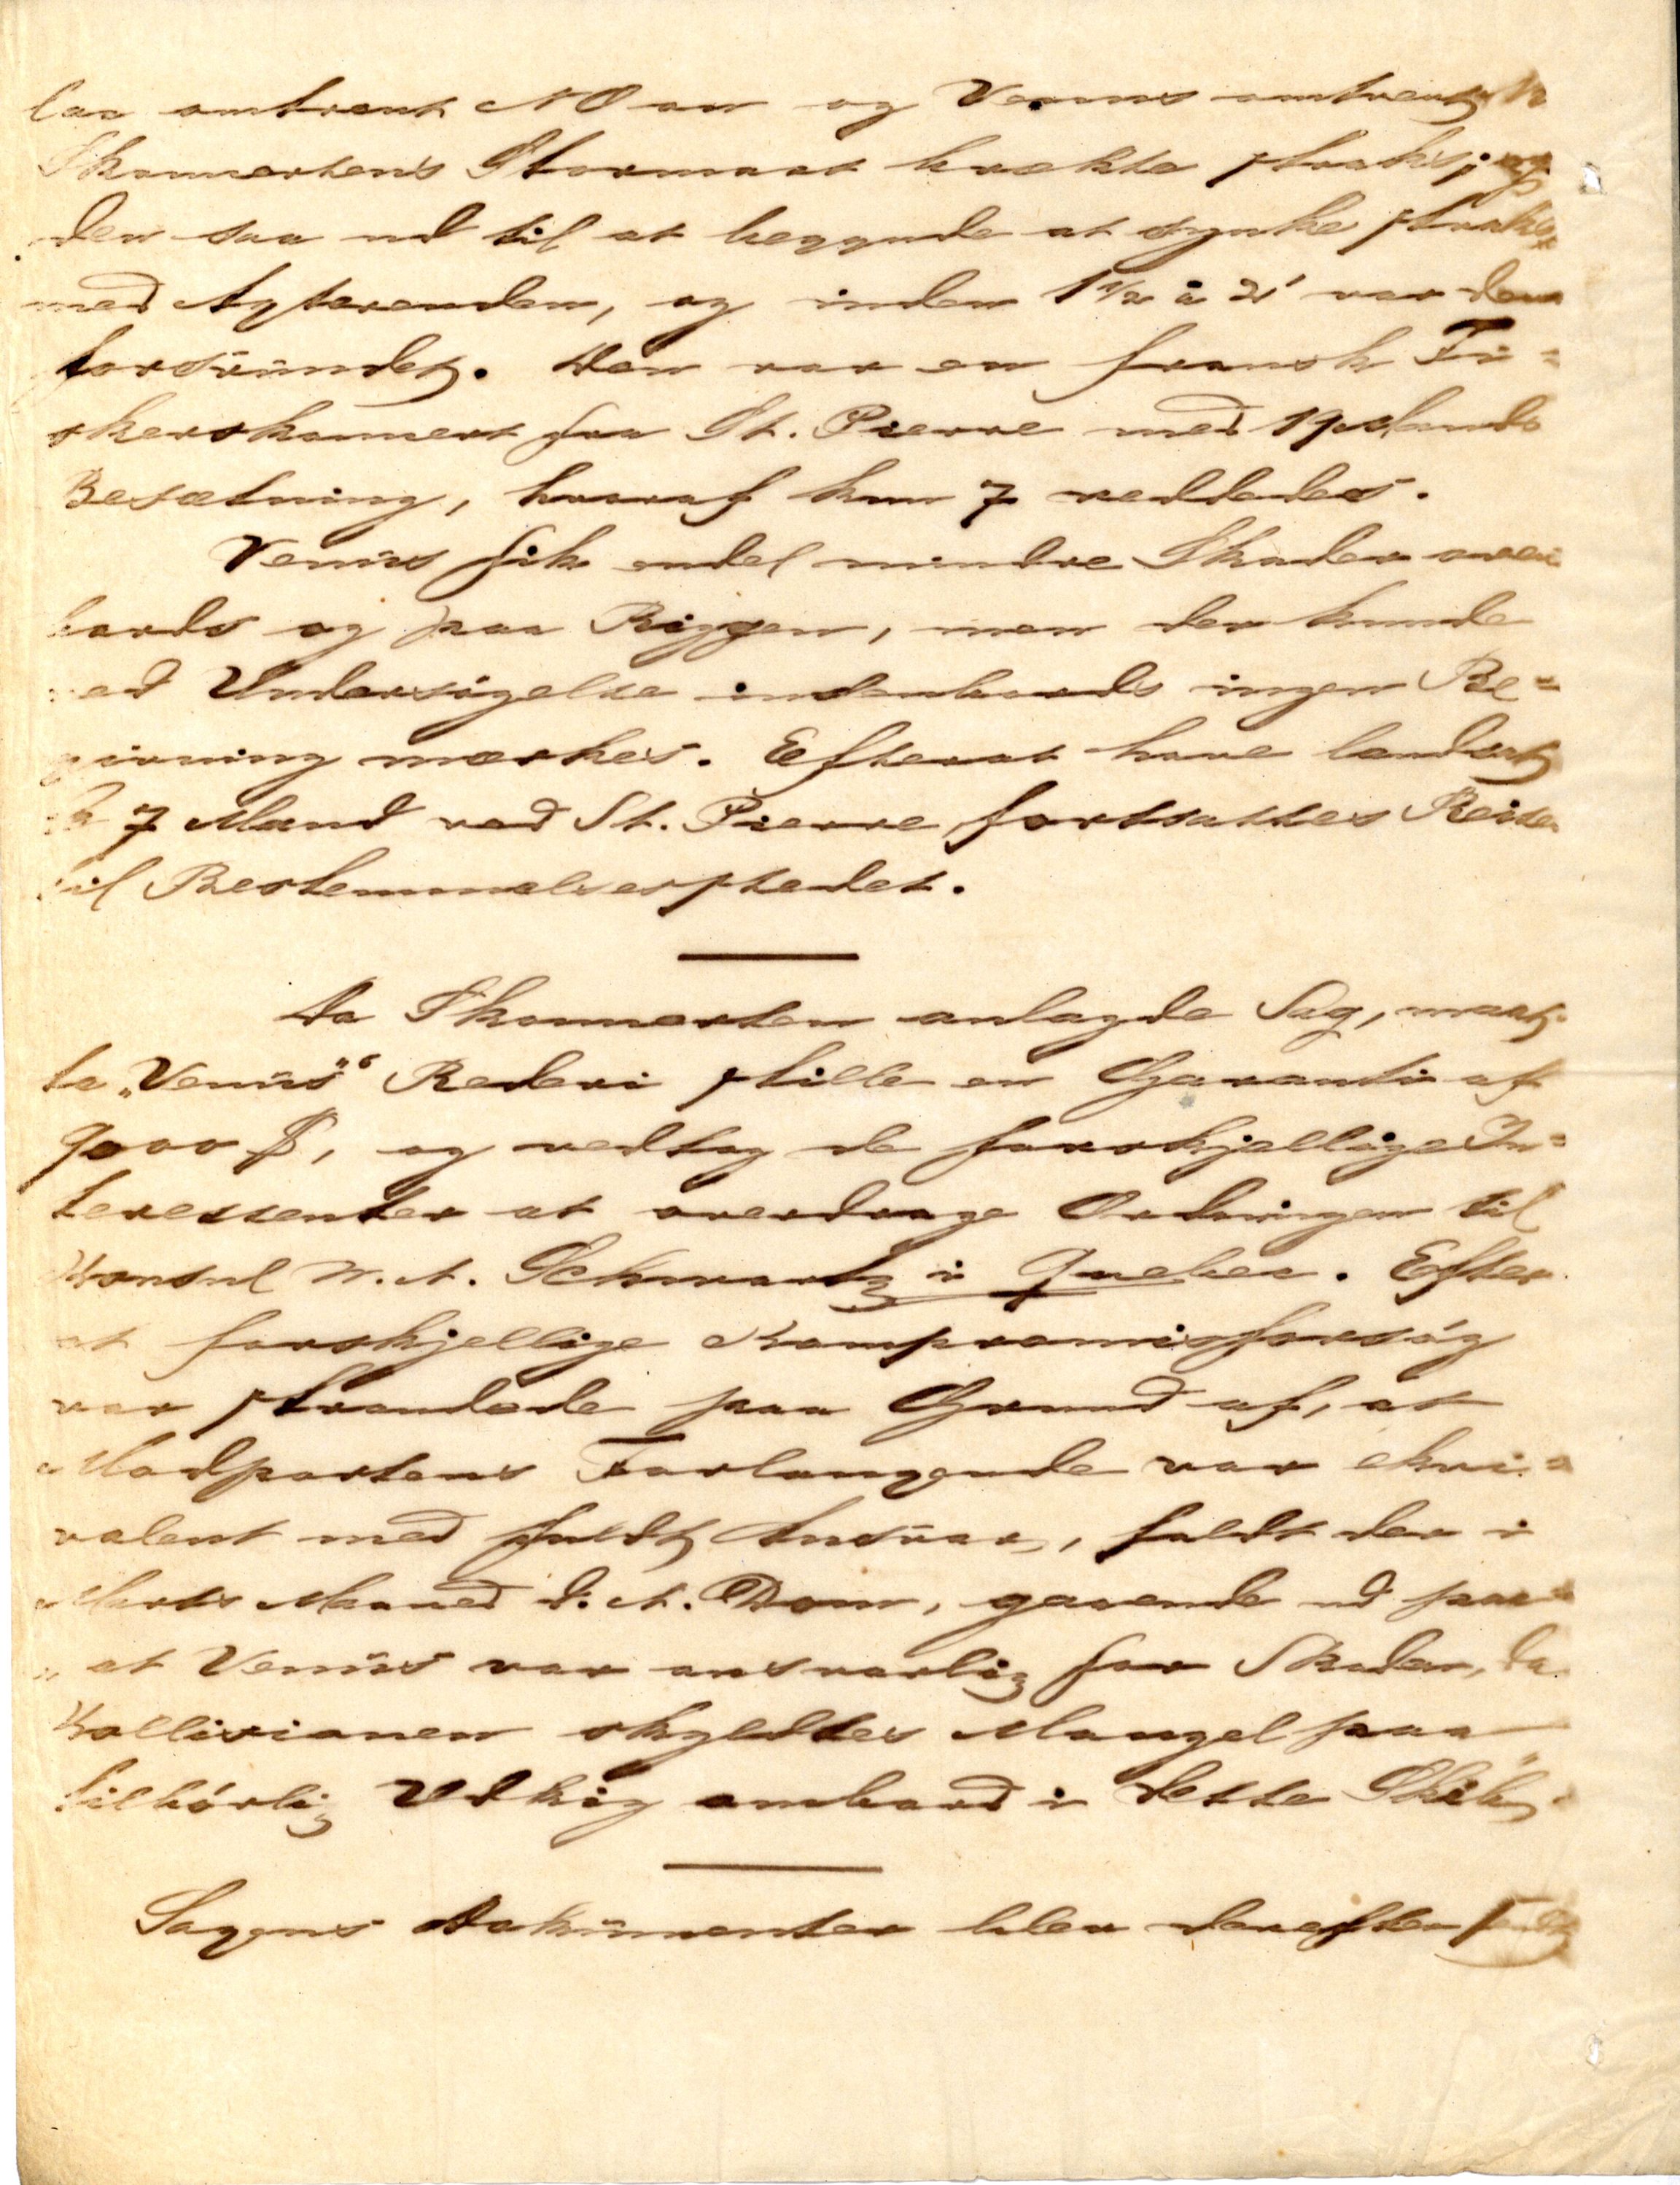 laa omtrent NO an og Venus omtrent N
Skonnertens Stormast brækte straks; og
den saa ud til at begynde at synke straks
med Agterenden, og inden 1½ à 2' var den
forsvundet. Den var en fransk Fi=
skerskonnert fra St. Pierre med 19 Mands
Besætning, hvoraf kun 7 reddedes.
Venus fik endel mindre Skader oven
bords og paa Riggen, men der kunde
ved Undersøgelse indenbords ingen Be=
givning mærkes. Efterat have landsat
de 7 Mand ved St. Pierre fortsattes Reisen
til Bestemmelsesstedet.
Da Skonnerten anlagde Sag, maat=
te „Venus“s Rederi stille en Garanti af
9000 $, og vedtog de forskjellige In=
teressenter at overdrage Ordningen til
Konsul W. A. Schwartz i Quebec. Efter
at forskjellige Kompromisforsøg
var strandede paa Grund af, at
Modpartens Forlangende var ekvi=
valent med fuldt Ansvar, faldt der i
Marts Maaned d. A. Dom, gaaende ud paa
„at Venus var ansvarlig for Skaden, da
Kollisionen skyldtes Mangel paa
tilbørlig Udkig ombord i dette Skib“.
Sagens Dokumenter blev derefter sendt